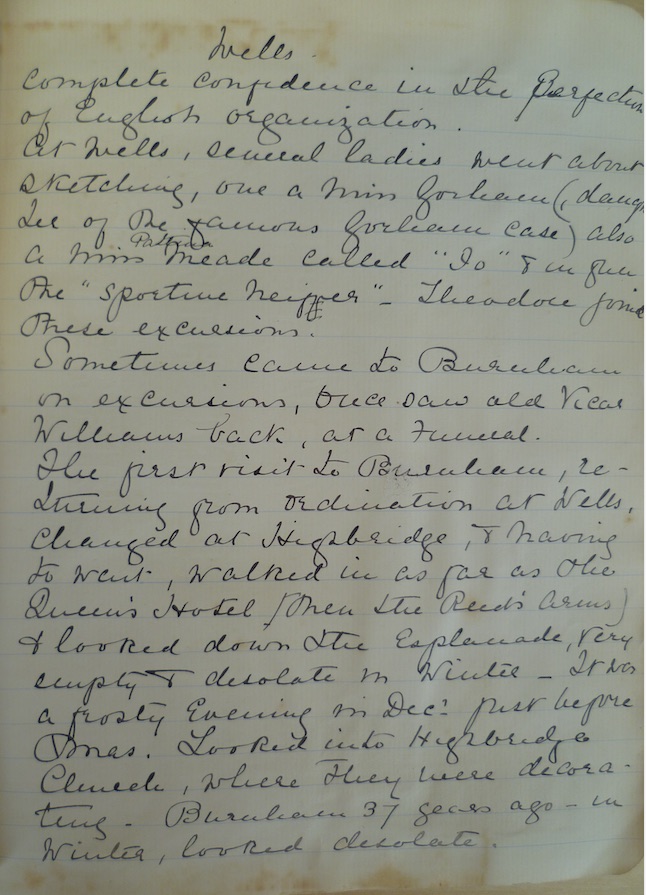 Wells.
complete confidence in the Perfection
of English organization.
At Wells, several ladies went about
sketching, one a Miss Gorham (, daugh
ter of the famous Gorham case) also
Patricia
a Miss Meade called "Jo" & in fun
the "Sportive Nipper" - Theodore joined
these excursions.
Sometimes came to Burnham
on excursions, Once saw old Vicar
Williams back, at a Funeral.
The first visit to Burnham, re-
turning from ordination at Wells,
changed at Highbridge, & having
to wait, walked in as far as the
Queen's Hotel (then the Reed's Arms)
& looked down the Esplanade, very
empty & desolate in Winter - It was
a frosty Evening in Decr. just before
Xmas. Looked into Highbridge
Church, where they were decora-
ting - Burnham 37 years ago - in
Winter, looked desolate.